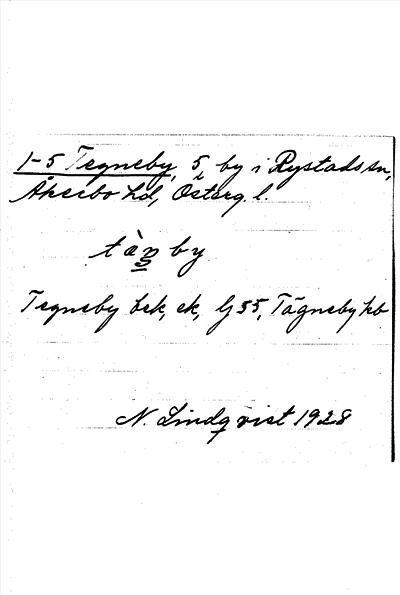 1-5 Tegneby, 5 by i Rystads sn,
Åkerbo hd, Österg. l.
tànby
Tegneby brk, ek, Gj 55, Tägneby kb
N. Lindqvist 1928